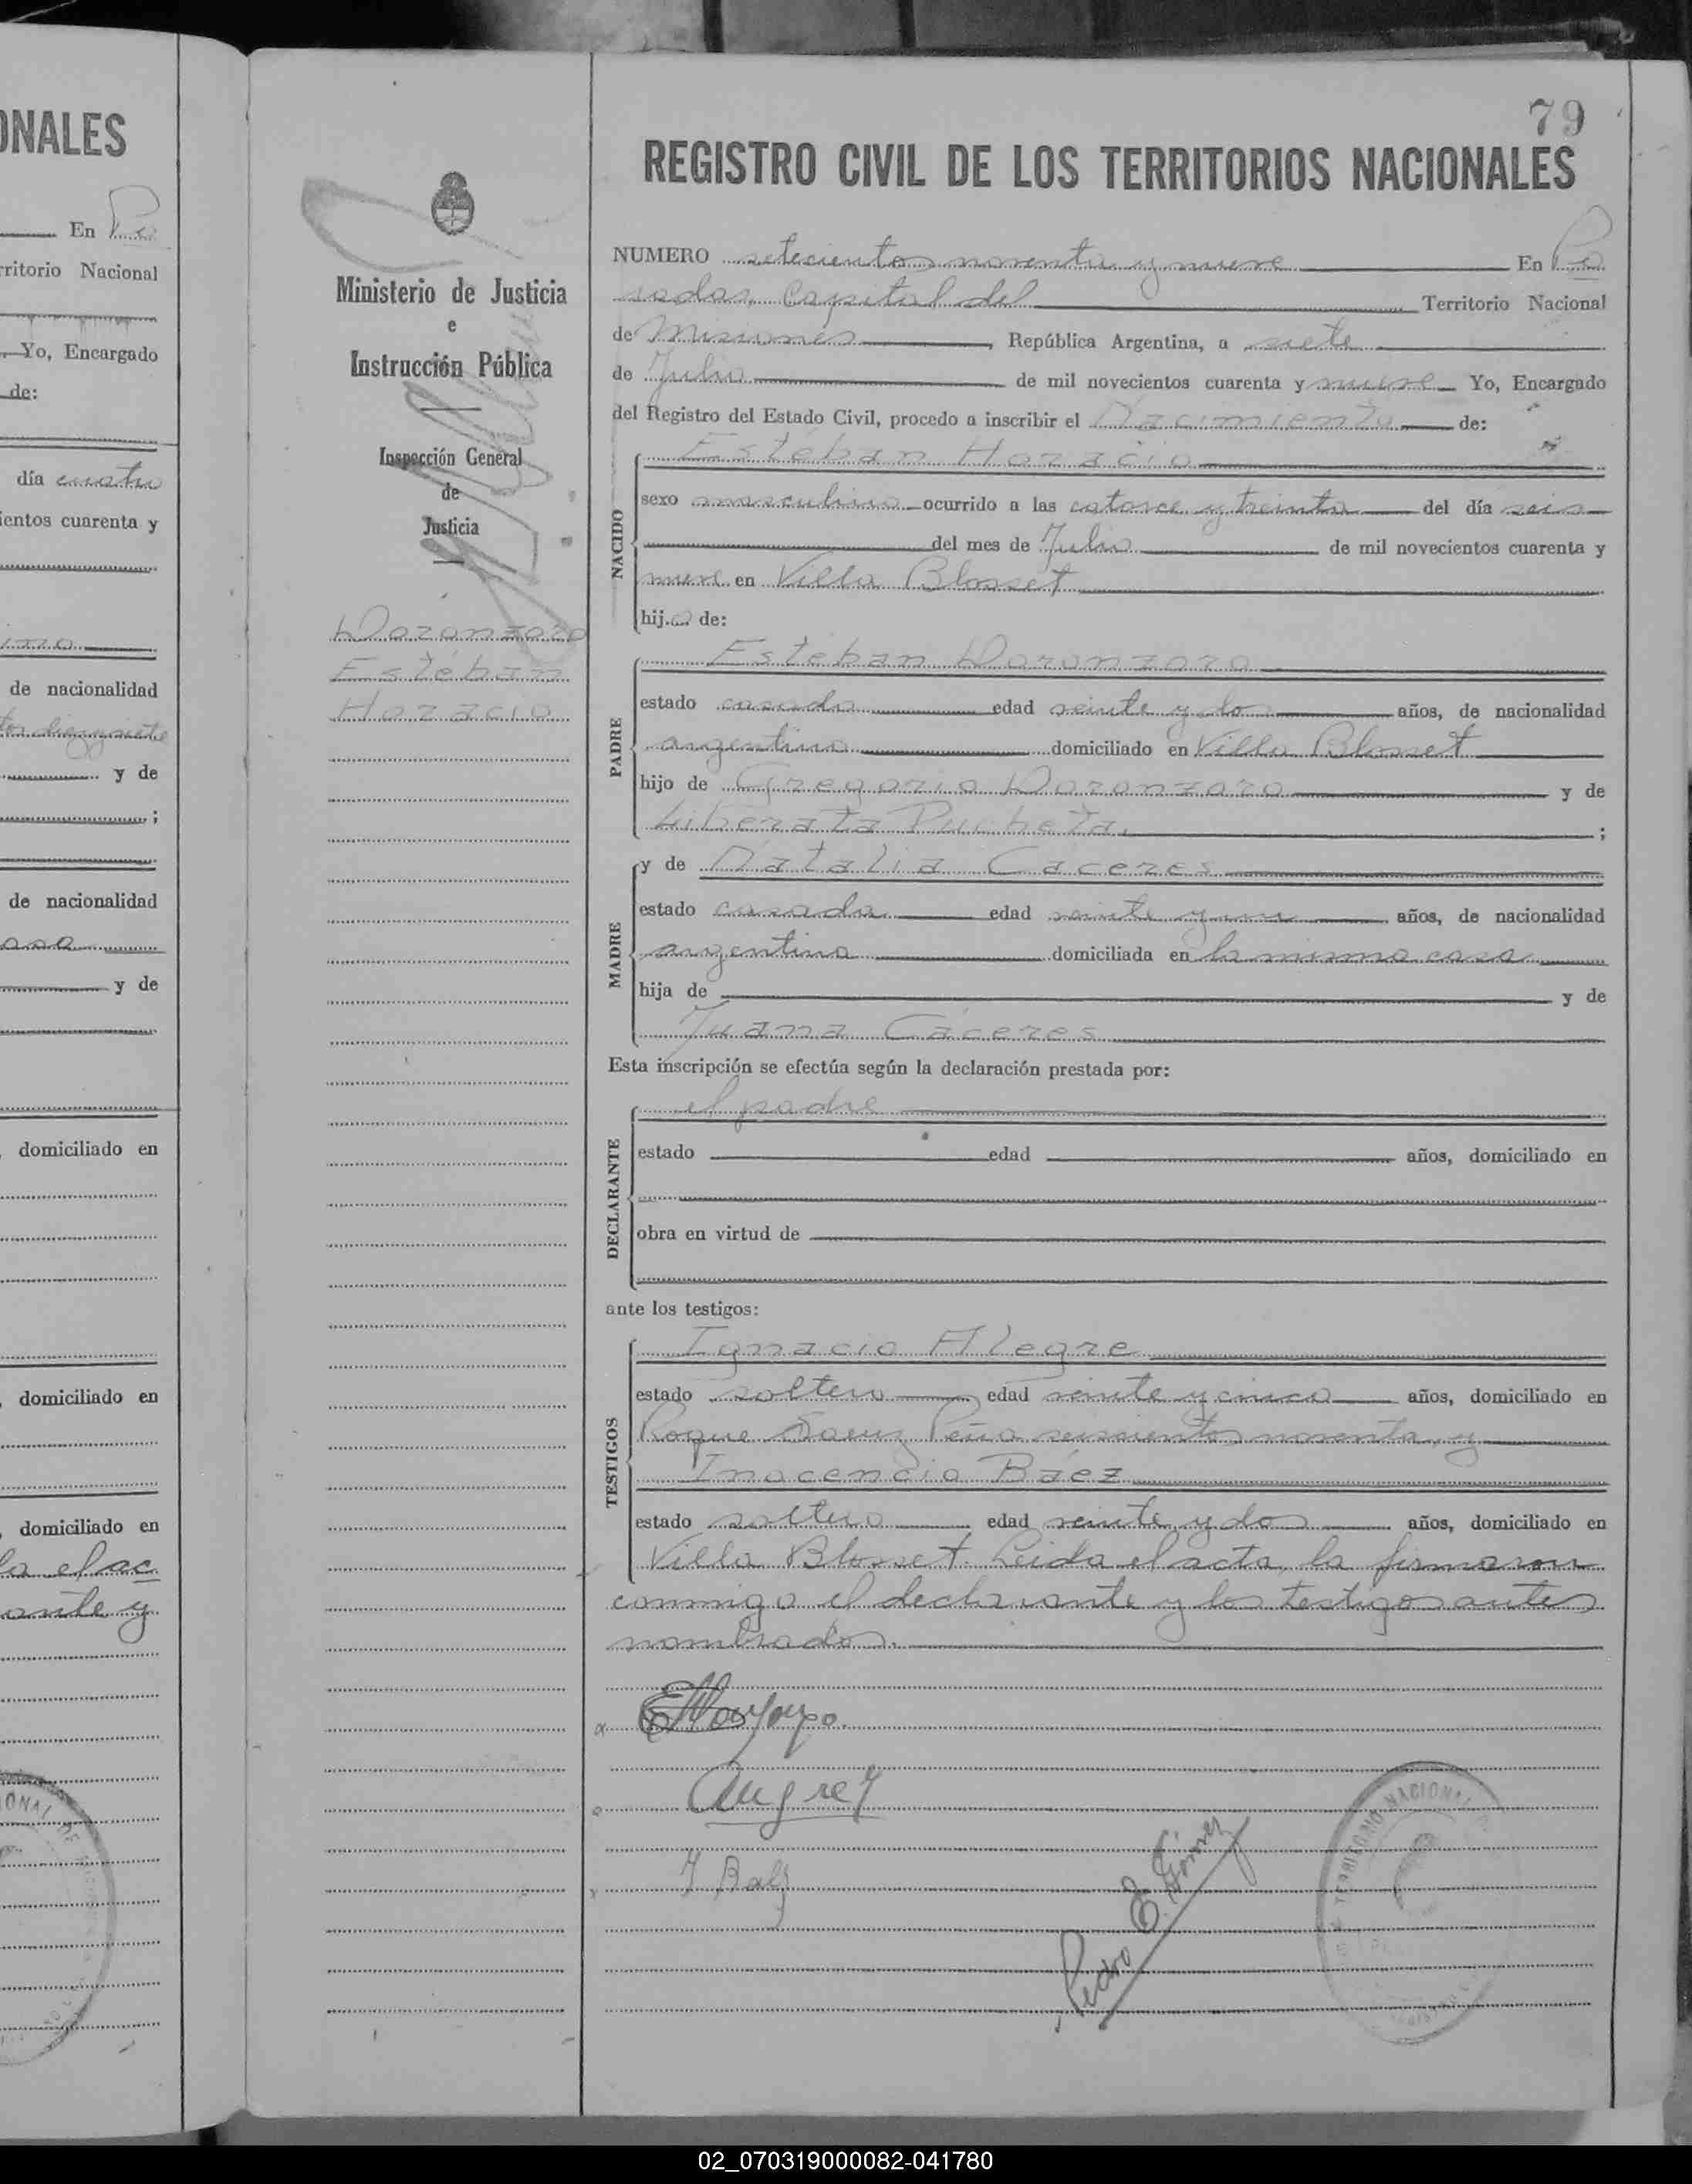 ONALES
En Po
rritorio Nacional
Yo, Encargado
de:
día cuatro
ientos cuarenta y
de nacionalidad
y de
;
de nacionalidad
y de
domiciliado en
domiciliado en
domiciliado en
la el ac
ante y
79
Ministerio de Justicia
e
Instrucción Pública
Inspección General
de
Justicia
Doronzoro
Estéban
Horacio
REGISTRO CIVIL DE LOS TERRITORIOS NACIONALES
NUMERO setecientos noventa y nueve En Po
sadas, Capital del Territorio Nacional
de Misiones, República Argentina, a siete
de Julio de mil novecientos cuarenta y nueve Yo, Encargado
del Registro del Estado Civil, procedo a inscribir el Nacimiento de:
NACIDO
Estéban Horacio
sexo masculino ocurrido a las catorce y treinta del día seis
del mes de Julio de mil novecientos cuarenta y
nueve en Villa Blosset
hijo de:
PADRE
Esteban Doronzoro
estado casado edad veinte y dos años, de nacionalidad
argentino domiciliado en Villa Blosset
hijo de Gregorio Doronzoro y de
Liberata Pucheta, ;
MADRE
y de Natalia Caceres
estado casada edad veinte y un años, de nacionalidad
argentina domiciliada en la misma casa
hija de y de
Juana Cáceres
Esta inscripción se efectúa según la declaración prestada por:
DECLARANTE
el padre
estado edad años, domiciliado en
obra en virtud de
ante los testigos:
TESTIGOS
Ignacio Alegre
estado soltero edad veinte y cinco años, domiciliado en
Roque Saenz Peña seiscientos noventa, y
Inocencio Báez
estado soltero edad veinte y dos años, domiciliado en
Villa Blosset. Leida el acta, la firmaron
conmigo el declarante y los testigos antes
nombrados.
Pedro E. Gómez
TERRITORIO NACIONAL
02_070319000082-041780